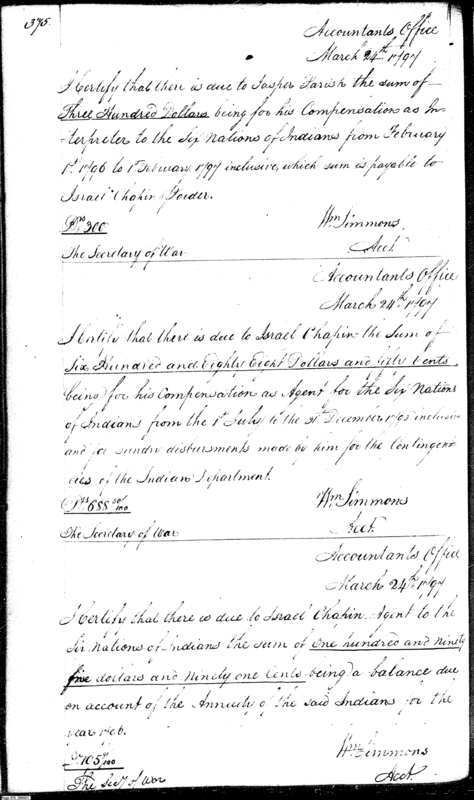 375.
Accountants Office
March 24th 1797
I Certify that there is due to Jasper Parish the sum of
Three Hundred Dollars being for his Compensation as In-
-terpreter to the Six Nations of Indians from February
1st 1796 to 1st February 1797 inclusive, which sum is payable to
Israel Chapin
Drs 300
Wm Simmons
The Secretary of War
Acct
Accountants Office
March 24th 1797
I Certify that there is due to Israel Chapin the Sum of
Six Hundred and Eighty Eight Dollars and Cents,
being for his Compensation as Agent for the Six Nations
of Indians from the 1st July to the 31st December inclusive
and for sundry disbursements made by him for the Contingen-
cies of the Indian Department.
688 /100
Wm Simmons
The Secretary of War
Acct.
Accountants Office
March 24th 1797
I Certify that there is due to Israel Chapin Agent to the
Six Nations of Indians the sum of One hundred and Ninety
five dollars and Ninety one Cents being a balance due
on account of the Annuity of the said Indians for the
year 1796.
91/100
Wm Simmons
The Secy of War
Acct.